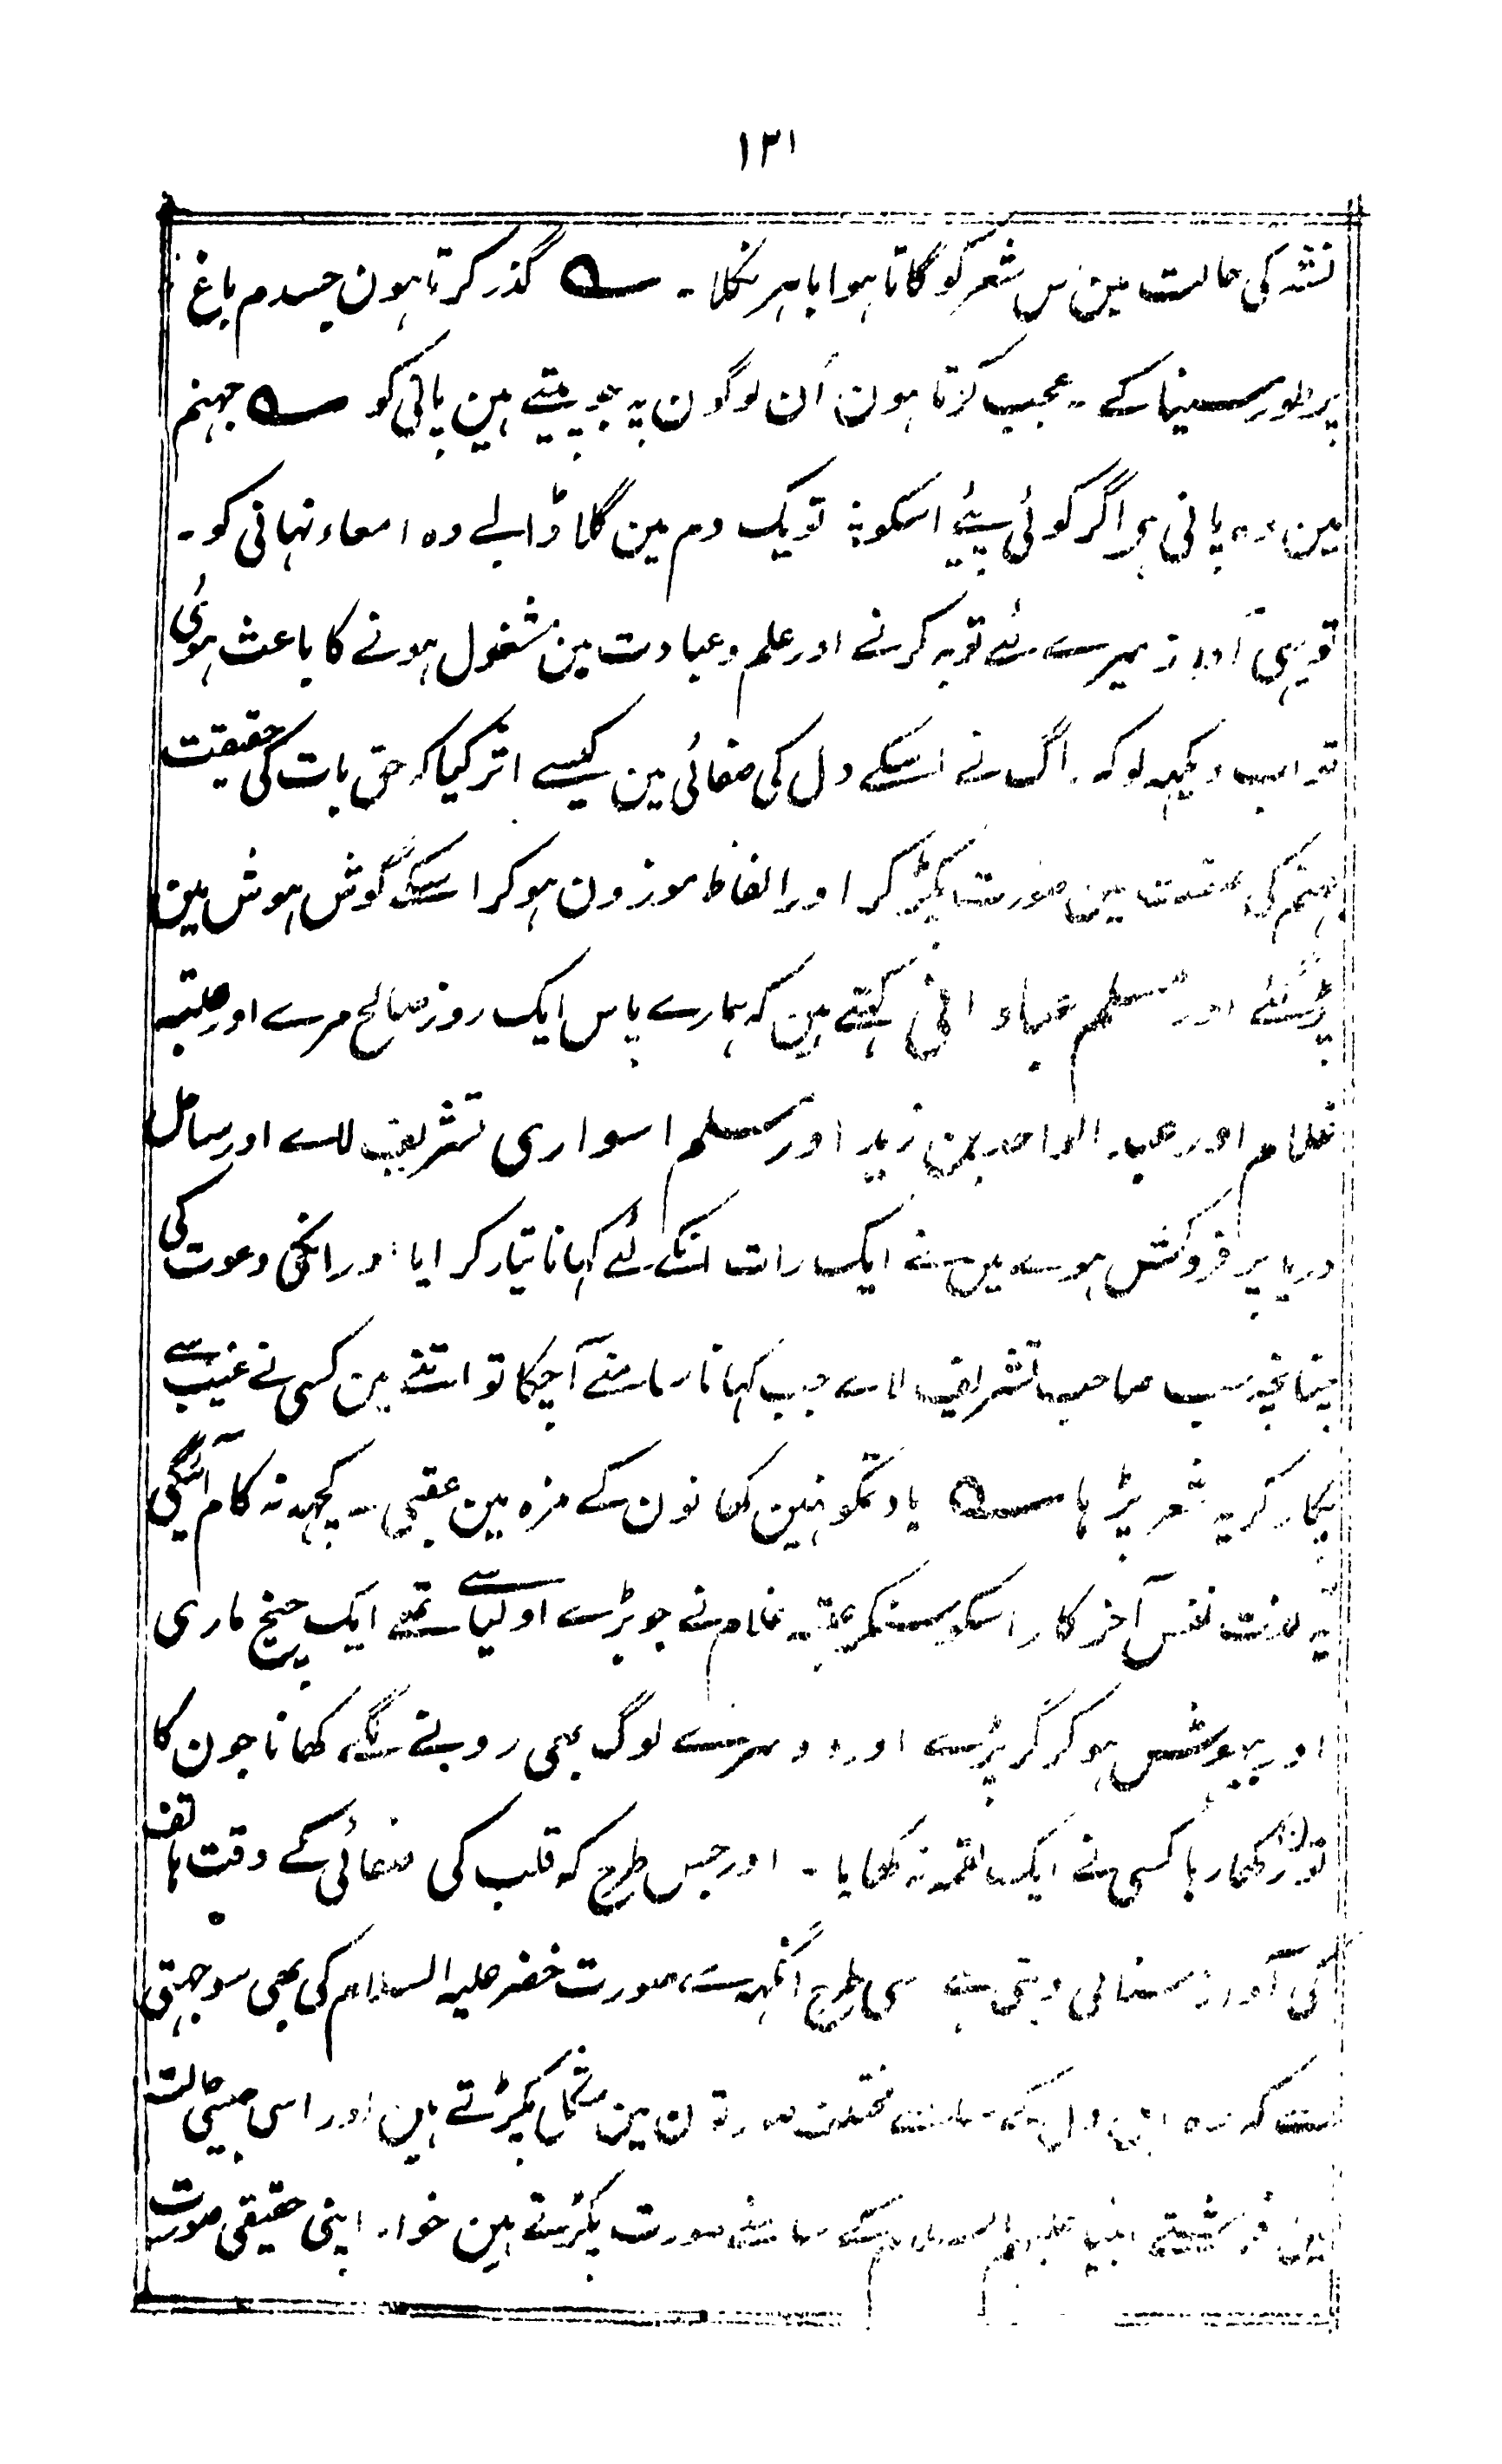 ۱۳۱
نشہ کی حالت مین اس شعر کو گاتا ہوا باہر نکلا ۔ ؎ گذر کرتا ہون جسدم باغ
پر طور سینا کے ۔ عجب کرتا ہون اُن لوگون پہ جو پیتے ہین پانی کو ؎ جہنم
مین وہ پانی ہر اگر کوئی پئیے اسکو ؛ تو یک دم مین گلا ڈالے وہ امعاء نہانی کو ۔
تو یہی آواز میرے لئے توبہ کرنے اور علم و عبادت مین مشغول ہونے کا باعث ہوئی
تو اب دیکہہ لو کہ راگ نے اسکے دل کی صفائی مین کیسے اثر کیا کہ حق بات کی حقیقت
جہنم کی صفت مین صورت پکڑ کر اور الفاظ موزون ہو کر اسکے گوش ہوش مین
پڑ گئے اور مسلم عبادانی کہتے ہین کہ ہمارے پاس ایک روز صالح مرے اور عتبہ
غلام اور عبد الواحد بن زید اور مسلم اسواری تشریف لاے اور ساحل
دریا پر فروکش ہوے مین نے ایک رات انکے لئے کہانا تیار کرایا اور انکی دعوت کی
چنانچہ سب صاحب تشریف لاے جب کہانا سامنے آچکا تو اتنے مین کسی نے غیب سے
پکار کر یہ شعر پڑہا ؎ یاد تمکو نہین کھانون کے مزہ مین عقبی ۔ کچہہ نہ کام آئیگی
یہ لذت نفس آخر کار اسکو سنکر عتبہ غلام نے جو بڑے اولیا سے تھے ایک چیخ ماری
اور بیہوش ہو کر گر پڑے اور دوسرے لوگ بھی رونے لگے کھانا جون کا
تون رکھا رہا کسی نے ایک لقمہ نہ کھایا ۔ اور جس طرح کہ قلب کی صفائی کے وقت ہاتف
کی آواز سنائی دیتی ہے اسی طرح آنکہہ سے صورت خضر علیہ السلام کی بھی سوجہتی
ہے کہ وہ اہل دل کے سامنے مختلف صورتون مین متشکل پکڑتے ہین اور اسی جیسی حالت
مین فرشتے انبیا علیہم السلام کے سامنے صورت پکڑتے ہین خواہ اپنی حقیقی صورت